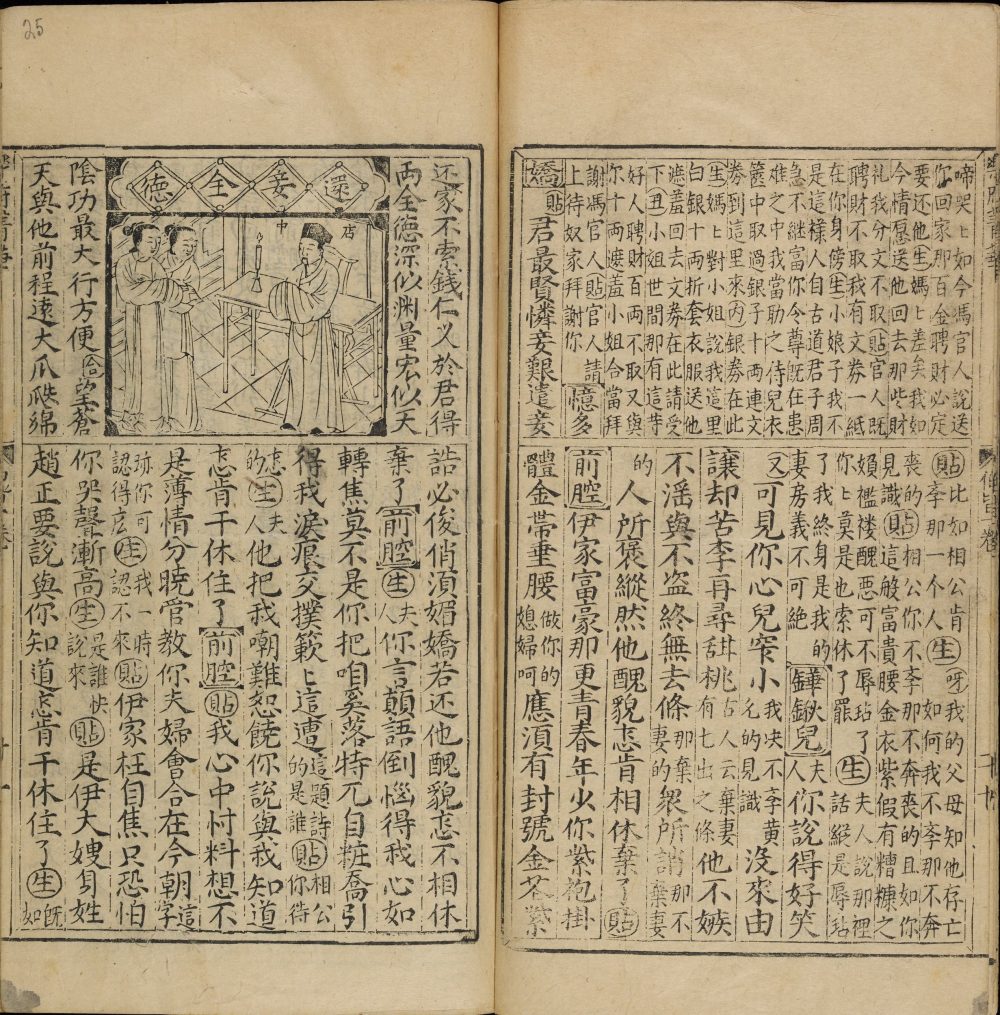 啼哭〻如今馮官人說送
你回家那百金聘財必定
要还他生媽〻差矣我如
今情愿送他回去那些財
礼我分文不取貼官人既
聘財不取我有文券一紙
在你身傍生小娘子我不
是這樣人自古道君子周
急不継富你今尊既在患
难之中我當助之侍兒衣
篋中取過銀子十兩連文
券到這里來内銀券在此
生媽〻對小姐說我這里
白銀十兩折套衣服送他
遮羞回去文券在此請受
下丑小姐世間那有這荨
好人聘財百兩不取又與
你十兩遮羞小姐今當拜
謝馮官人貼官人請
上待奴家拜謝你 憶多
嬌貼君最賢憐妾艱遣妾
貼比如相公肯生呀我的父母知他存亡
李那一个人如何我不李那不奔
喪的貼相公你不李那不奔喪的且如你
見識貼這般富貴腰金衣紫假有糟糠之
𡞦襤褸醜恶可不辱玷了生夫人說那裡
你〻莫是也索休了罷話縱是辱玷
了我終身是我的
妻房義不可絶 鏵鍬兒夫人你說得好笑
又可見你心兒窄小我决不李黄沒來由
譲却苦李再尋甜桃古人云棄妻有七出之條他不嫉
不淫與不盗終無去條那棄妻的衆所誚那不棄妻
的人所褒縱然他醜貌怎肯相休棄了貼
前腔伊家富豪那更青春年少你紫袍掛
體金帶垂腰做你的媳婦呵應須有封號金花紫
25
还家不索錢仁义於君得
兩全德深似渊量宏似天
還妾全德
店中
陰功最大行方便合望蒼
天與他前程遠大瓜瓞綿
誥必俊俏須媚嬌若还他醜貌怎不相休
棄了前腔生夫人你言顛語倒惱得我心如
轉焦莫不是你把咱奚落特兀自粧喬引
得我淚痕交撲簌〻這遭這題詩的是誰貼相公你待
怎的生夫人他把我嘲難恕饒你說與我知道
怎肯干休住了前腔貼我心中忖料想不
是薄情分曉管教你夫婦會合在今朝這字
跡你可認得庅生我一時認不來貼伊家枉自焦只恐怕
你哭聲漸高生是誰快說來貼是伊大嫂身姓
趙正要說與你知道怎肯干休住了生既如